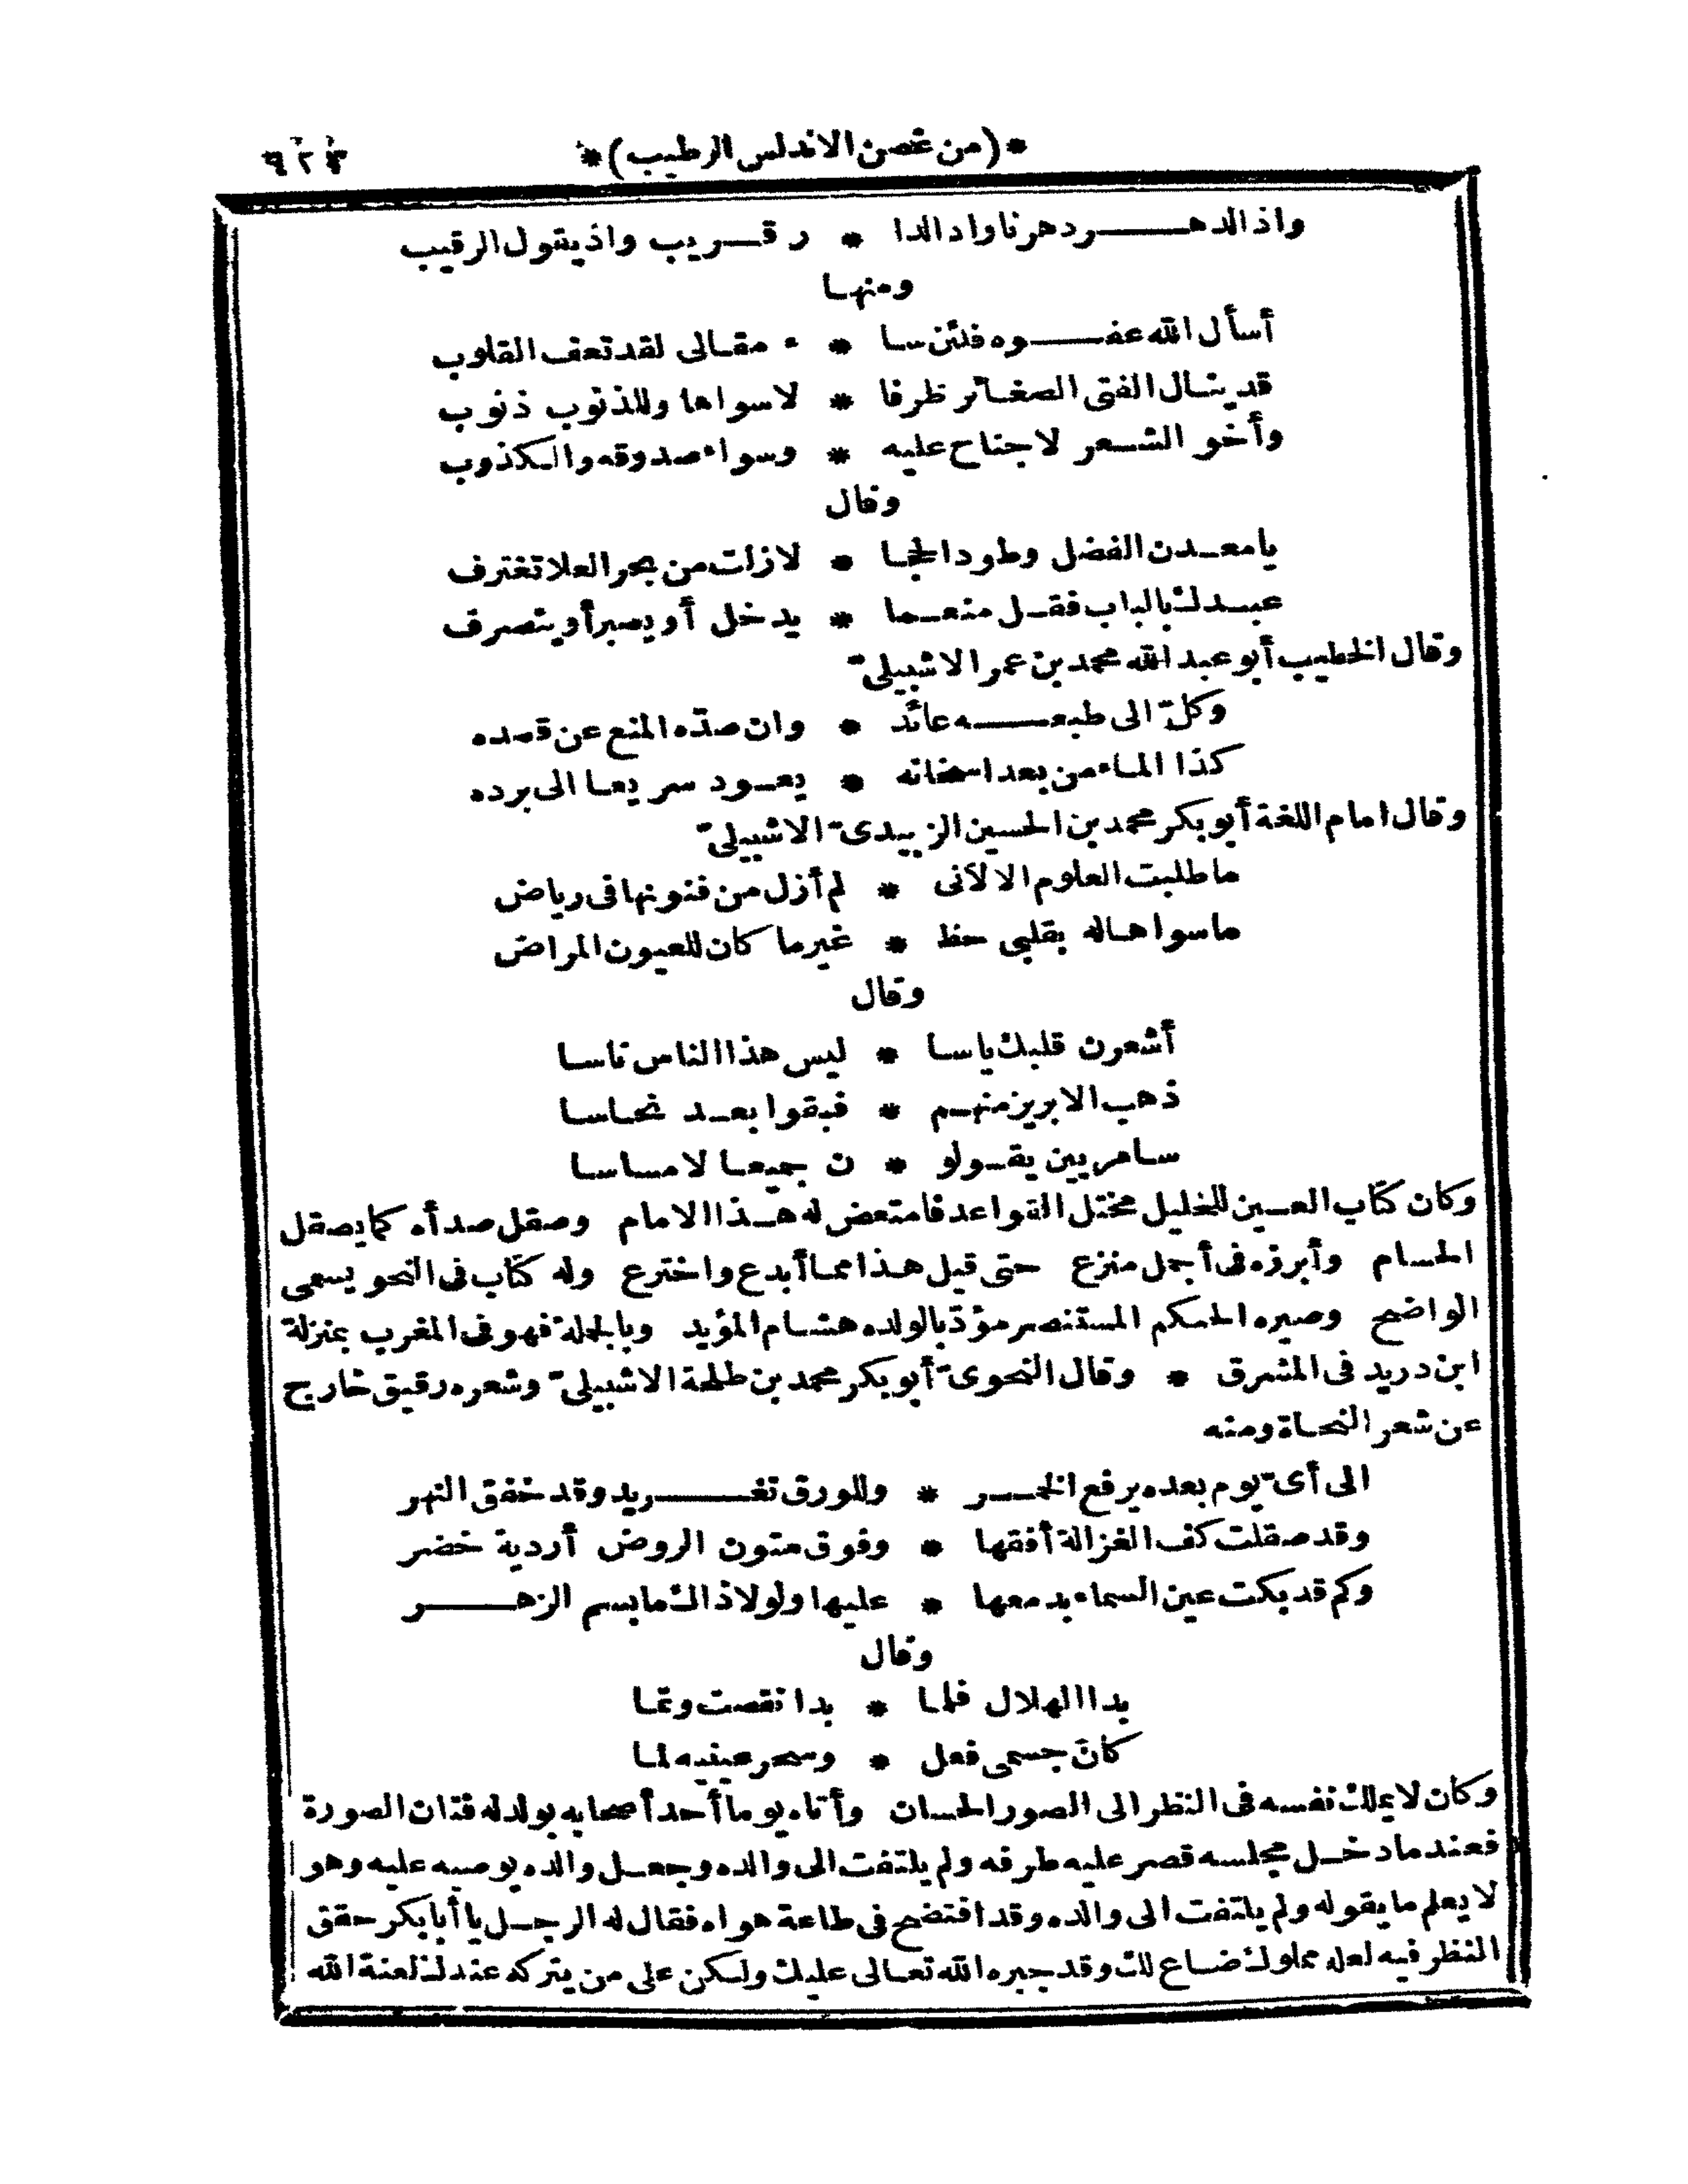 *(من غصن الاندلس الرطيب)*
واذ الدهر دهرنا واد الدا * ر قريب واذ يقول الرقيب
ومنها
أسأل الله عفوه فلئن سا * ء مقالى لقد تعف القلوب
قد ينال الفتى الصغائر ظرفا * لا سواها وللذنوب ذنوب
وأخو الشعر لا جناح عليه * وسواء صدوقه والكذوب
وقال
يا معدن الفضل وطود الحجا * لا زلت من بحر العلا تغترف
عبدك بالباب فقل منعما * يدخل أو يصبر أو ينصرف
وقال الخطيب أبو عبد الله محمد بن عمر الاشبيلىّ
وكلّ الى طبعه عائد * وان صدّه المنع عن قصده
كذا الماء من بعد اسخانه * يعود سريعا الى برده
وقال امام اللغة أبو بكر محمد بن الحسين الزبيدىّ الاشبيلىّ
ما طلبت العلوم الا لانى * لم أزل من فنونها فى رياض
ما سواها له بقلبى حظ * غير ما كان للعيون المراض
وقال
أشعرن قلبك ياسا * ليس هذا الناس ناسا
ذهب الابريز منهم * فبقوا بعد نحاسا
سامريين يقولو * ن جميعا لا مساسا
وكان كتاب العين للخليل مختل القواعد فامتعض له هذا الامام وصقل صدأه كما يصقل
الحسام وأبرزه فى أجمل منزع حتى قيل هذا مما أبدع واخترع وله كتاب فى النحو يسمى
الواضح وصيره الحكم المستنصر مؤدّبا لولده هشام المؤيد وبالجملة فهو فى المغرب بمنزلة
ابن دريد فى المشرق * وقال النحوىّ أبو بكر محمد بن طلحة الاشبيلىّ وشعره رقيق خارج
عن شعر النحاة ومنه
الى أىّ يوم بعده يرفع الخمر * وللورق تغريد وقد خفق النهر
وقد صقلت كف الغزالة أفقها * وفوق متون الروض أردية خضر
وكم قد بكت عين السماء بدمعها * عليها ولولا ذاك ما بسم الزهر
وقال
بدا الهلال فلما * بدا نقصت وتما
كانّ جسمى فعل * وسحر عينيه لما
وكان لا يملك نفسه فى النظر الى الصور الحسان وأتاه يوما أحد أصحابه بولد له فتان الصورة
فعند ما دخل مجلسه قصر عليه طرفه ولم يلتفت الى والده وجعل والده يوصيه عليه وهو
لا يعلم ما يقوله ولم يلتفت الى والده وقد افتضح فى طاعة هواه فقال له الرجل يا أبا بكر حقق
النظر فيه لعله مملوك ضاع لك وقد جبره الله تعالى عليك ولكن على من يتركه عندك لعنة الله